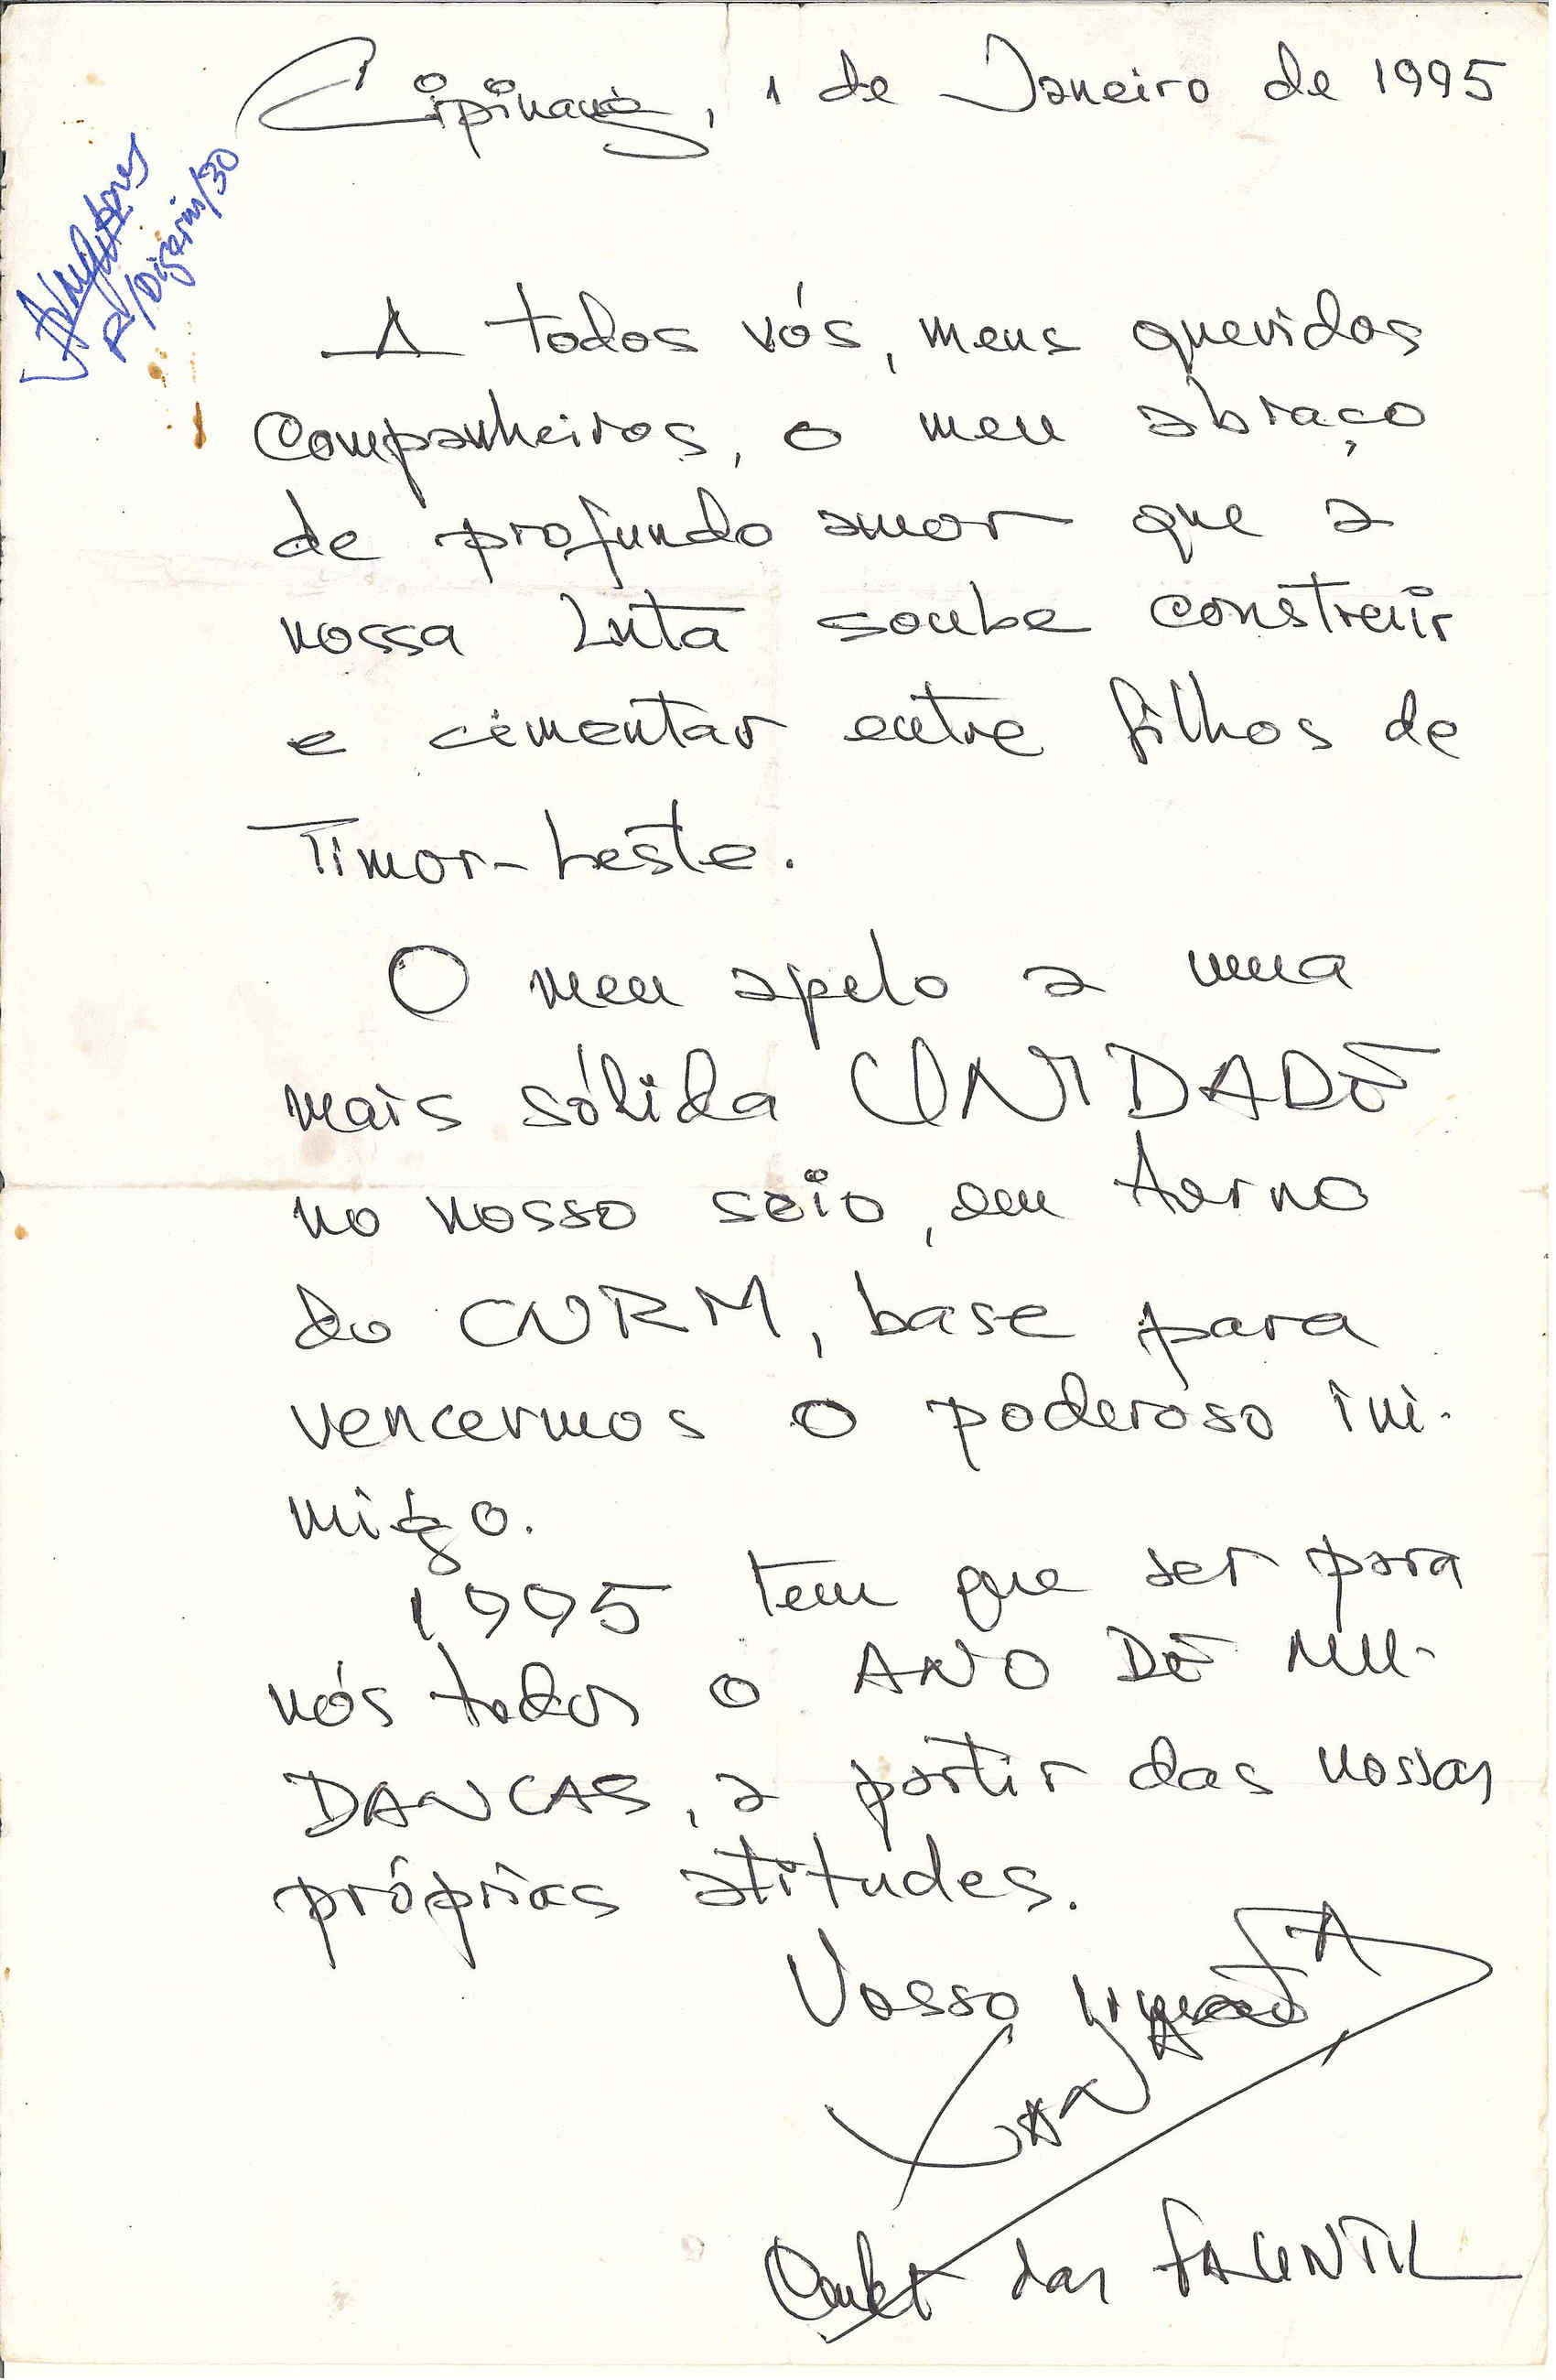 Cipinang, 1 de Janeiro de 1995
A todos vós, meus queridos
companheiros, o meu abraço
de profundo amor que a
nossa Luta soube construir
e cimentar entre filhos de
Timor-Leste.
O meu apelo a uma
mais sólida UNIDADE
no nosso seio, em torno
do CNRM, base para
vencermos o poderoso ini-
migo.
1995 tem que ser para
nós todos o ANO DE MU-
DANCAS, a partir das nossas
próprias atitudes.
Vosso irmão
XANANA
das FALINTIL